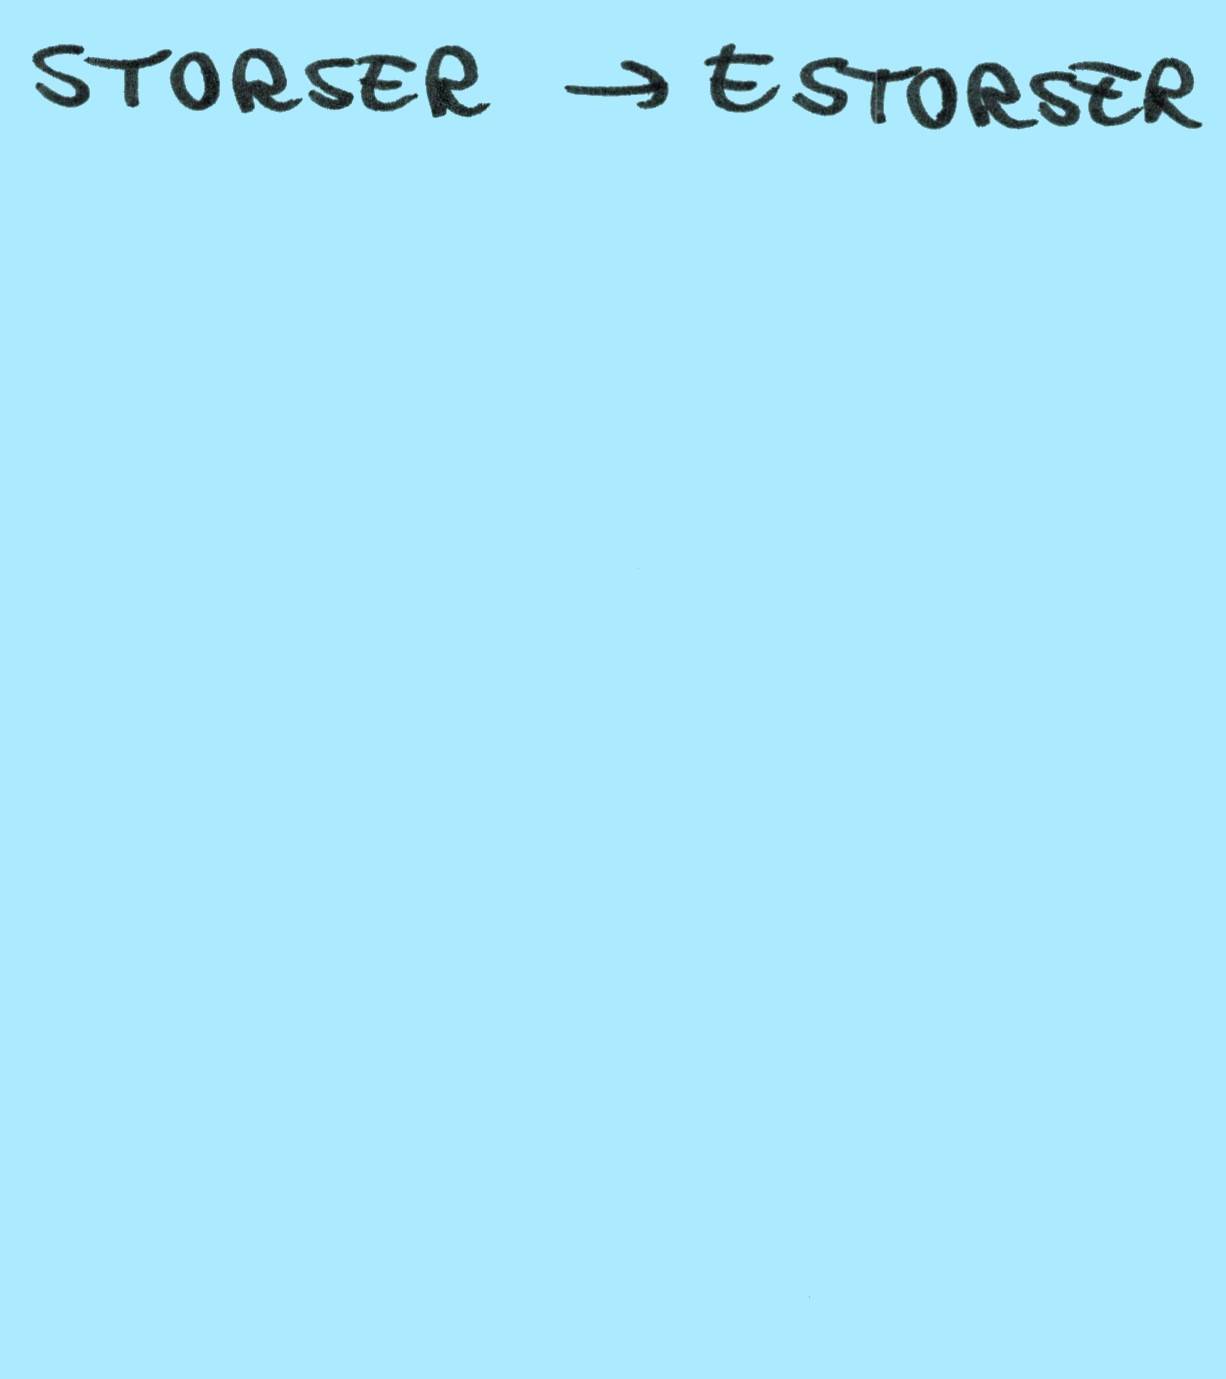 STORSER → ESTORSER